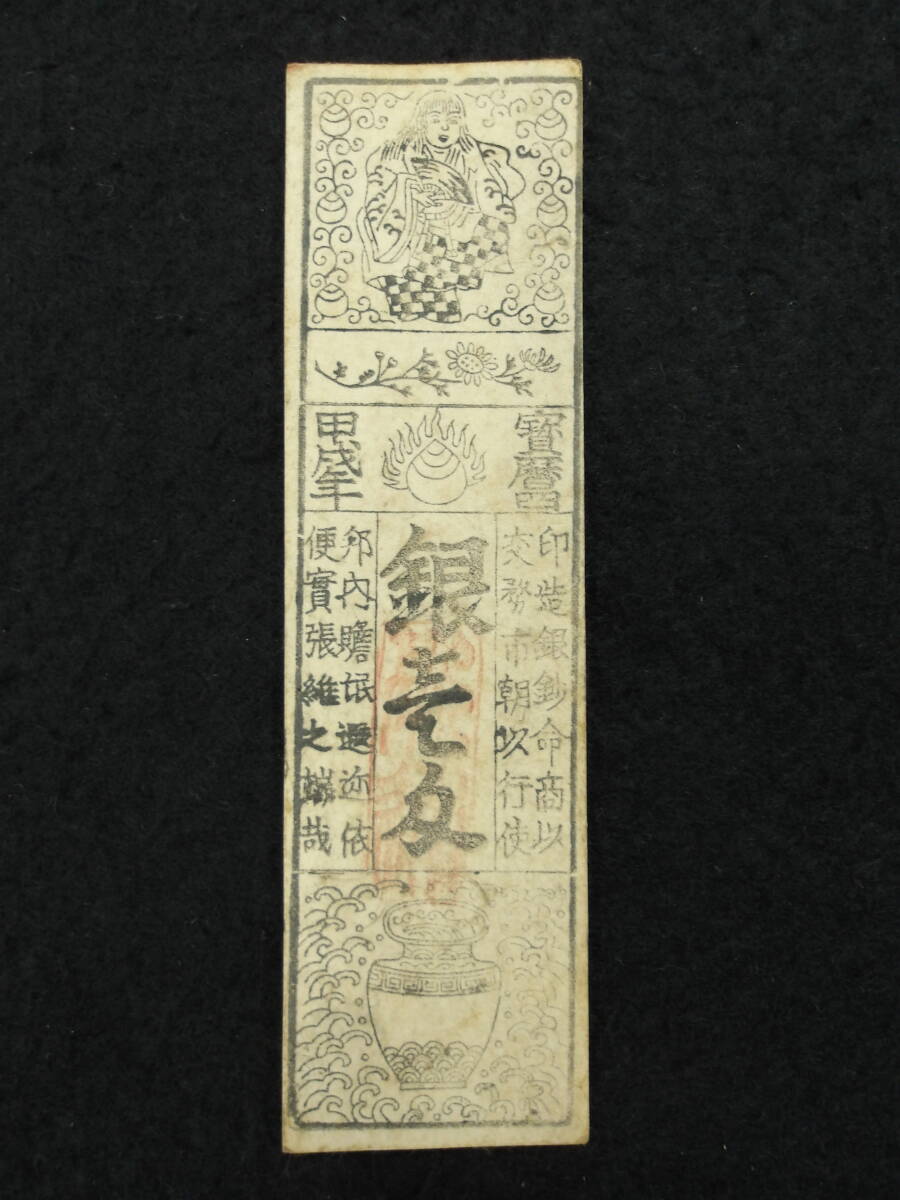 寶曆四
甲戌年
印造銀鈔命商以
交務市朝以行使
銀壱匁
邦內贍氓遐迩依
便實張維之端哉